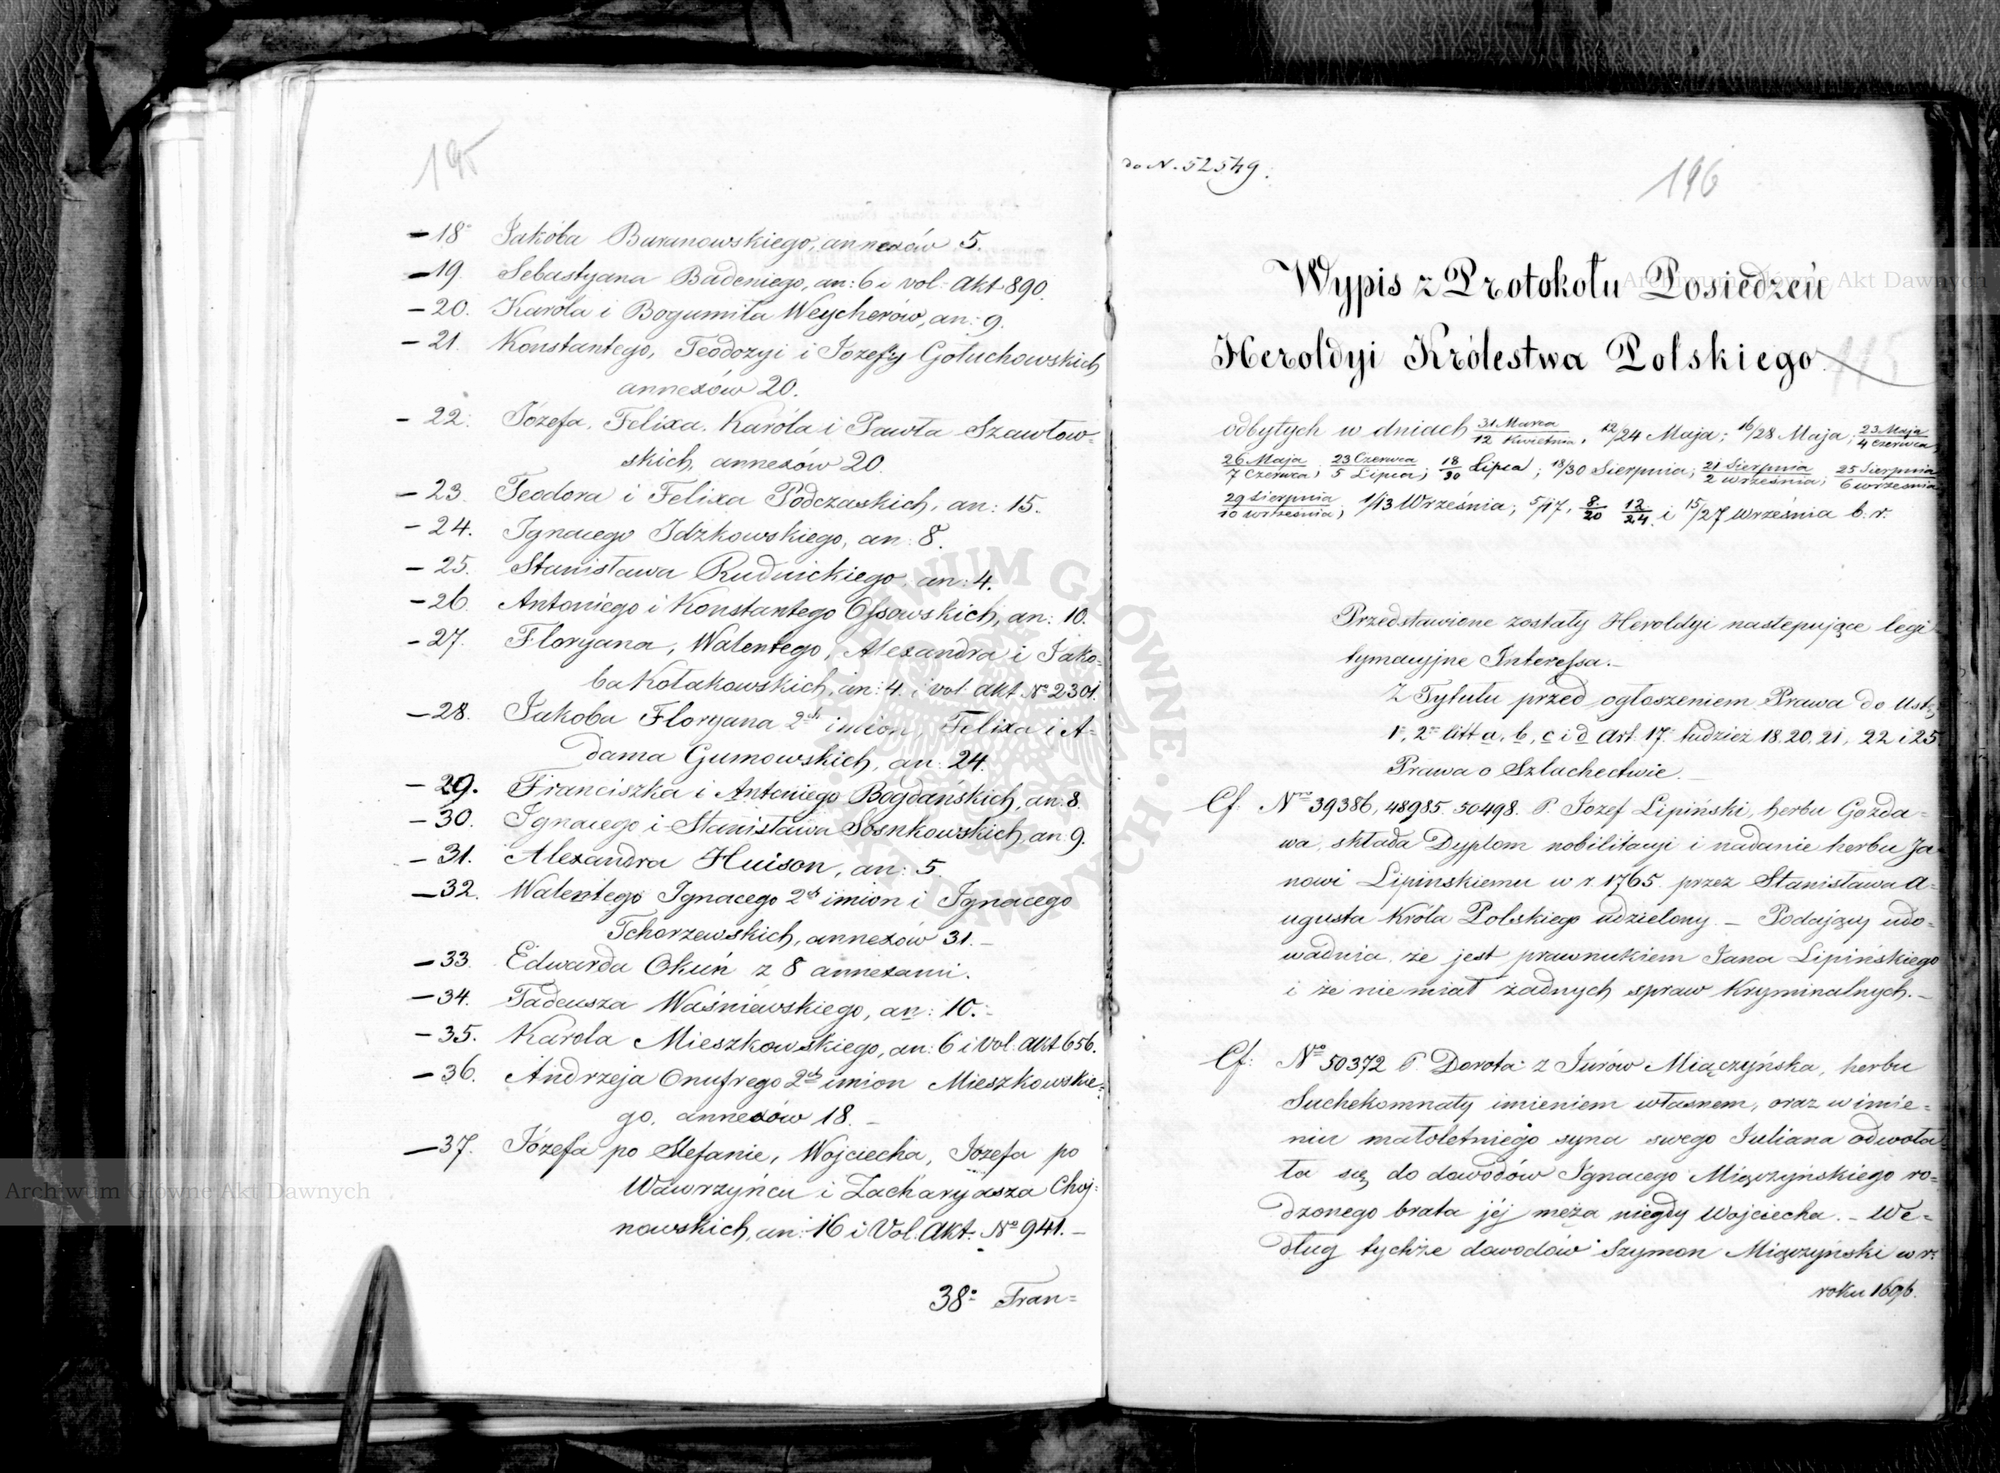 195
— 18. Jakóba Baranowskiego, annexów 5.
— 19. Sebastyana Badeniego, an: 6 i vol: Akt 890.
— 20. Karola i Bogumiła Weycherów, an: 9.
— 21. Konstantego, Teodozyi i Józefy Gołuchowskich
annexów 20.
— 22. Józefa, Felixa, Karóla i Pawła Szawłow=
skich, annexów 20.
— 23. Teodora i Felixa Podczaskich, an: 15.
— 24. Ignacego Idzkowskiego, an: 8.
— 25. Stanisława Rudnickiego, an: 4.
— 26. Antoniego i Konstantego Ossowskich, an: 10.
— 27. Floryana, Walentego, Alexandra i Jako=
ba Kołakowskich, an: 4. i vol: akt. No 2301.
— 28. Jakoba Floryana 2ch imion, Felixa i A=
dama Gumowskich, an: 24.
— 29. Franciszka i Antoniego Bogdańskich, an: 8.
— 30. Ignacego i Stanisława Sosnkowskich, an: 9.
— 31. Alexandra Huison, an: 5.
— 32. Walentego Ignacego 2ch imion i Ignacego
Tchorzewskich, annexów 31. —
— 33. Edwarda Okuń z 8 annexami.
— 34. Tadeusza Waśniewskiego, an: 10. —
— 35. Karola Mieszkowskiego, an: 6 i Vol: Akt 656.
— 36. Andrzeja Onufrego 2ch imion Mieszkowskie=
go, annexów 18. —
— 37. Józefa po Stefanie, Wojciecha, Józefa po
Wawrzyńcu i Zacharyasza Choj=
nowskich, an: 16 i Vol. Akt. No 941. —
38o Fran=
do N. 52549.
196
Wypis z Protokołu Posiedzeń
Heroldyi Królestwa Polskiego.
115
odbytych w dniach 31 Marca/12 Kwietnia, 12/24 Maja; 16/28 Maja; 23 Maja/4 Czerwca,
26 Maja/7 Czerwca; 23 Czerwca/5 Lipca; 18/30 Lipca; 18/30 Sierpnia; 21 Sierpnia/2 września; 25 Sierpnia/6 września
29 Sierpnia/10 września; 1/13 Września; 5/17, 8/20 12/24 i 15/27 Września b: r.
Przedstawione zostały Heroldyi następujące legi
tymacyjne Interessa. —
Z Tytułu przed ogłoszeniem Prawa do Ustę
1o, 2o litt a, b, c i d Art. 17o tudzież 18, 20, 21, 22 i 25
Prawa o Szlachectwie. —
Cf: Nra 39386, 48985. 50498. P. Józef Lipiński, herbu Gozda=
wa, składa Dyplom nobilitacyi i nadanie herbu Ja=
nowi Lipińskiemu w r. 1765. przez Stanisława A=
ugusta Króla Polskiego udzielony. — Podający udo=
wadnia, że jest prawnukiem Jana Lipińskiego
i że nie miał żadnych spraw Kryminalnych. —
Cf: No 50372 P. Dorota z Jurów Miączyńska, herbu
Suchekomnaty imieniem własnem, oraz w imie=
niu małoletniego syna swego Juliana odwoła
ła się do dowodów Ignacego Miączyńskiego ro=
dzonego brata jéj męża niegdy Wojciecha. — We=
dług tychże dowodów Szymon Miączyński w r:
roku 1696.
Archiwum Główne Akt Dawnych
Archiwum Główne Akt Dawnych
ARCHIWUM GŁÓWNE AKT DAWNYCH